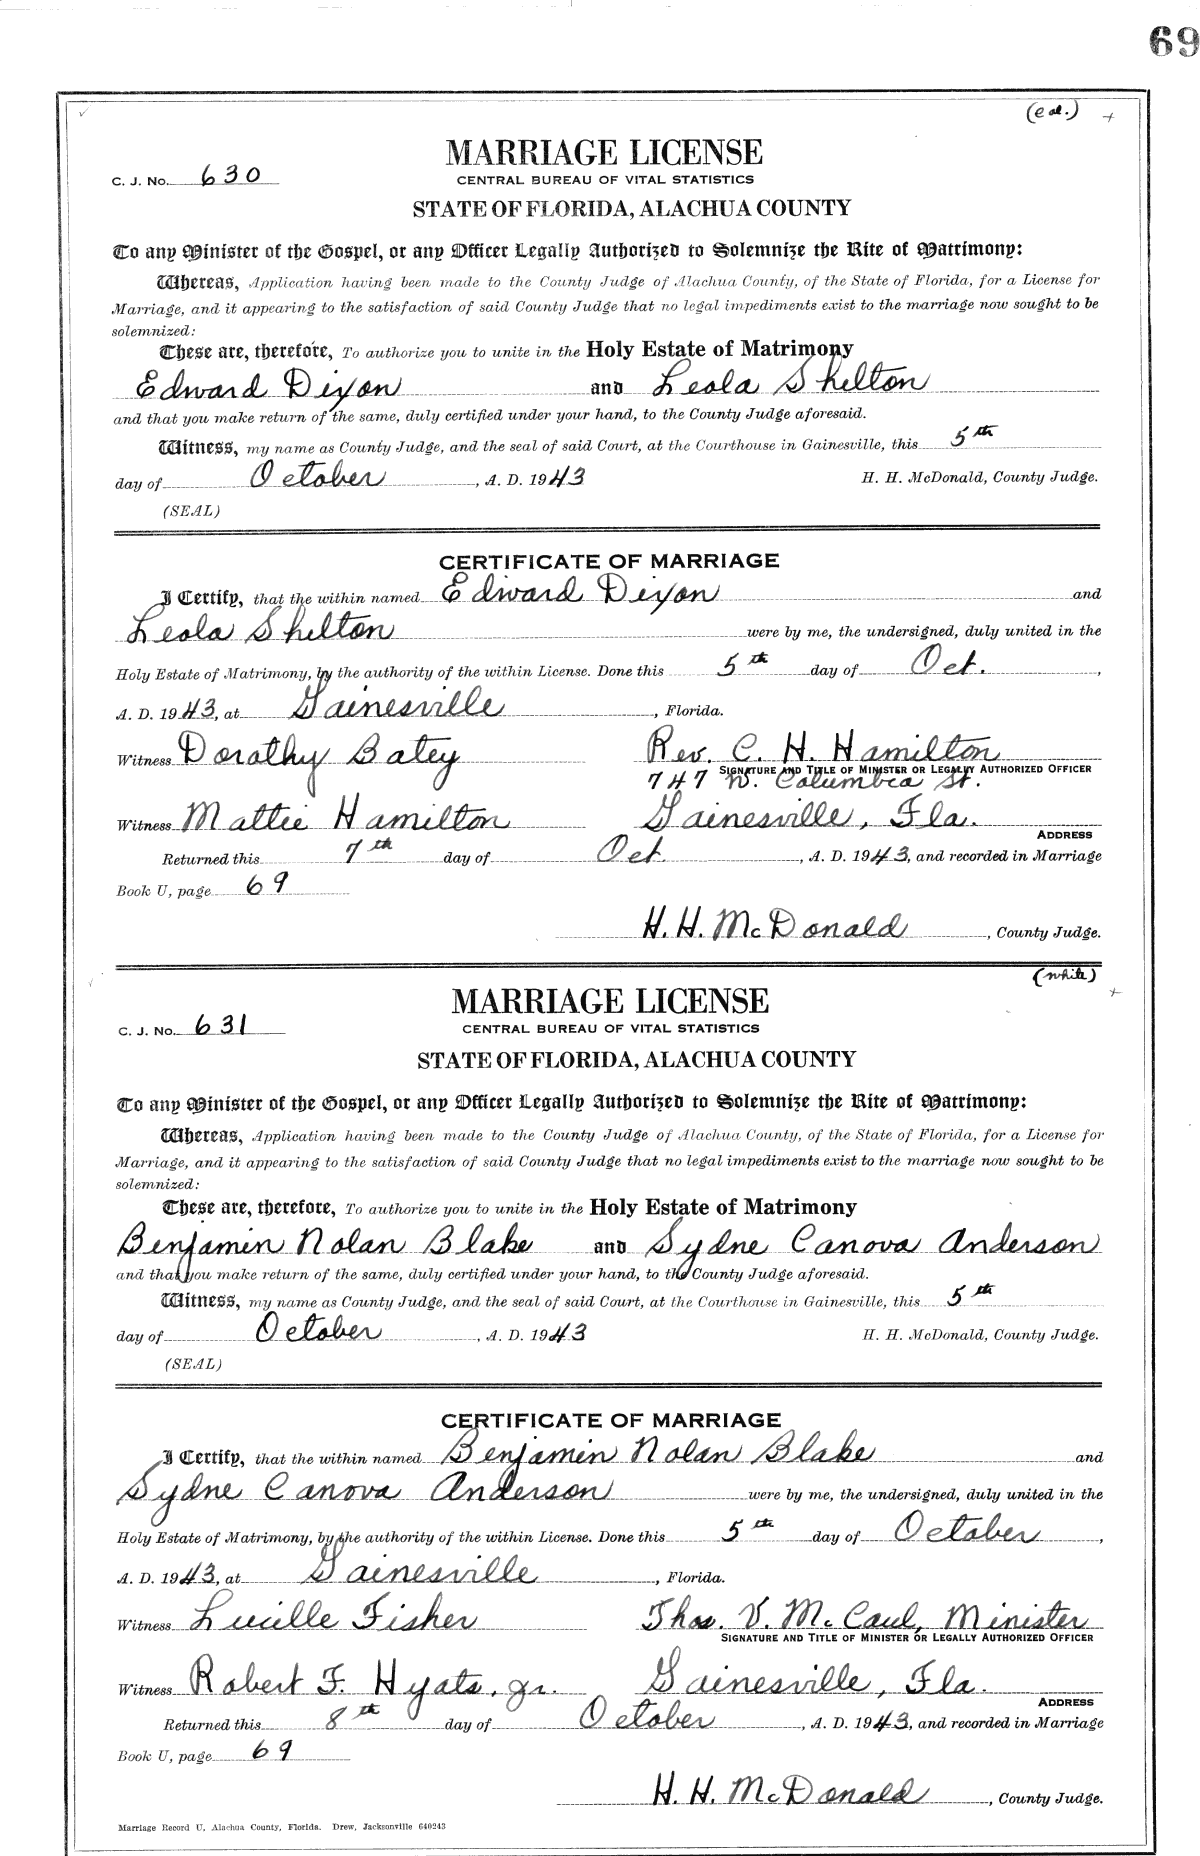 69
(col.)
MARRIAGE LICENSE
C. J. No. 630
CENTRAL BUREAU OF VITAL STATISTICS
STATE OF FLORIDA, ALACHUA COUNTY
To any Minister of the Gospel, or any Officer Legally Authorized to Solemnize the Rite of Matrimony:
Whereas, Application having been made to the County Judge of Alachua County, of the State of Florida, for a License for
Marriage, and it appearing to the satisfaction of said County Judge that no legal impediments exist to the marriage now sought to be
solemnized:
These are, therefore, To authorize you to unite in the Holy Estate of Matrimony
Edward Dixon and Leola Shelton
and that you make return of the same, duly certified under your hand, to the County Judge aforesaid.
Witness, my name as County Judge, and the seal of said Court, at the Courthouse in Gainesville, this 5th
day of October, A. D. 1943 H. H. McDonald, County Judge.
(SEAL)
CERTIFICATE OF MARRIAGE
I Certify, that the within named Edward Dixon and
Leola Shelton were by me, the undersigned, duly united in the
Holy Estate of Matrimony, by the authority of the within License. Done this 5th day of Oct.,
A. D. 1943, at Gainesville, Florida.
Witness Dorathy Batey Rev. C. H. Hamilton
SIGNATURE AND TITLE OF MINISTER OR LEGALLY AUTHORIZED OFFICER
747 W. Columbia St.
Witness Mattie Hamilton Gainesville, Fla.
ADDRESS
Returned this 7th day of Oct, A. D. 1943, and recorded in Marriage
Book U, page 69
H. H. McDonald, County Judge.
(white)
MARRIAGE LICENSE
C. J. No. 631
CENTRAL BUREAU OF VITAL STATISTICS
STATE OF FLORIDA, ALACHUA COUNTY
To any Minister of the Gospel, or any Officer Legally Authorized to Solemnize the Rite of Matrimony:
Whereas, Application having been made to the County Judge of Alachua County, of the State of Florida, for a License for
Marriage, and it appearing to the satisfaction of said County Judge that no legal impediments exist to the marriage now sought to be
solemnized:
These are, therefore, To authorize you to unite in the Holy Estate of Matrimony
Benjamin Nolan Blake and Sydne Canova Anderson
and that you make return of the same, duly certified under your hand, to the County Judge aforesaid.
Witness, my name as County Judge, and the seal of said Court, at the Courthouse in Gainesville, this 5th
day of October, A. D. 1943 H. H. McDonald, County Judge.
(SEAL)
CERTIFICATE OF MARRIAGE
I Certify, that the within named Benjamin Nolan Blake and
Sydne Canova Anderson were by me, the undersigned, duly united in the
Holy Estate of Matrimony, by the authority of the within License. Done this 5th day of October,
A. D. 1943, at Gainesville, Florida.
Witness Lucille Fisher Thos. V. McCaul, Minister
SIGNATURE AND TITLE OF MINISTER OR LEGALLY AUTHORIZED OFFICER
Witness Robert F. Hyats, Jr. Gainesville, Fla.
ADDRESS
Returned this 8th day of October, A. D. 1943, and recorded in Marriage
Book U, page 69
H. H. McDonald, County Judge.
Marriage Record U, Alachua County, Florida. Drew, Jacksonville 640243